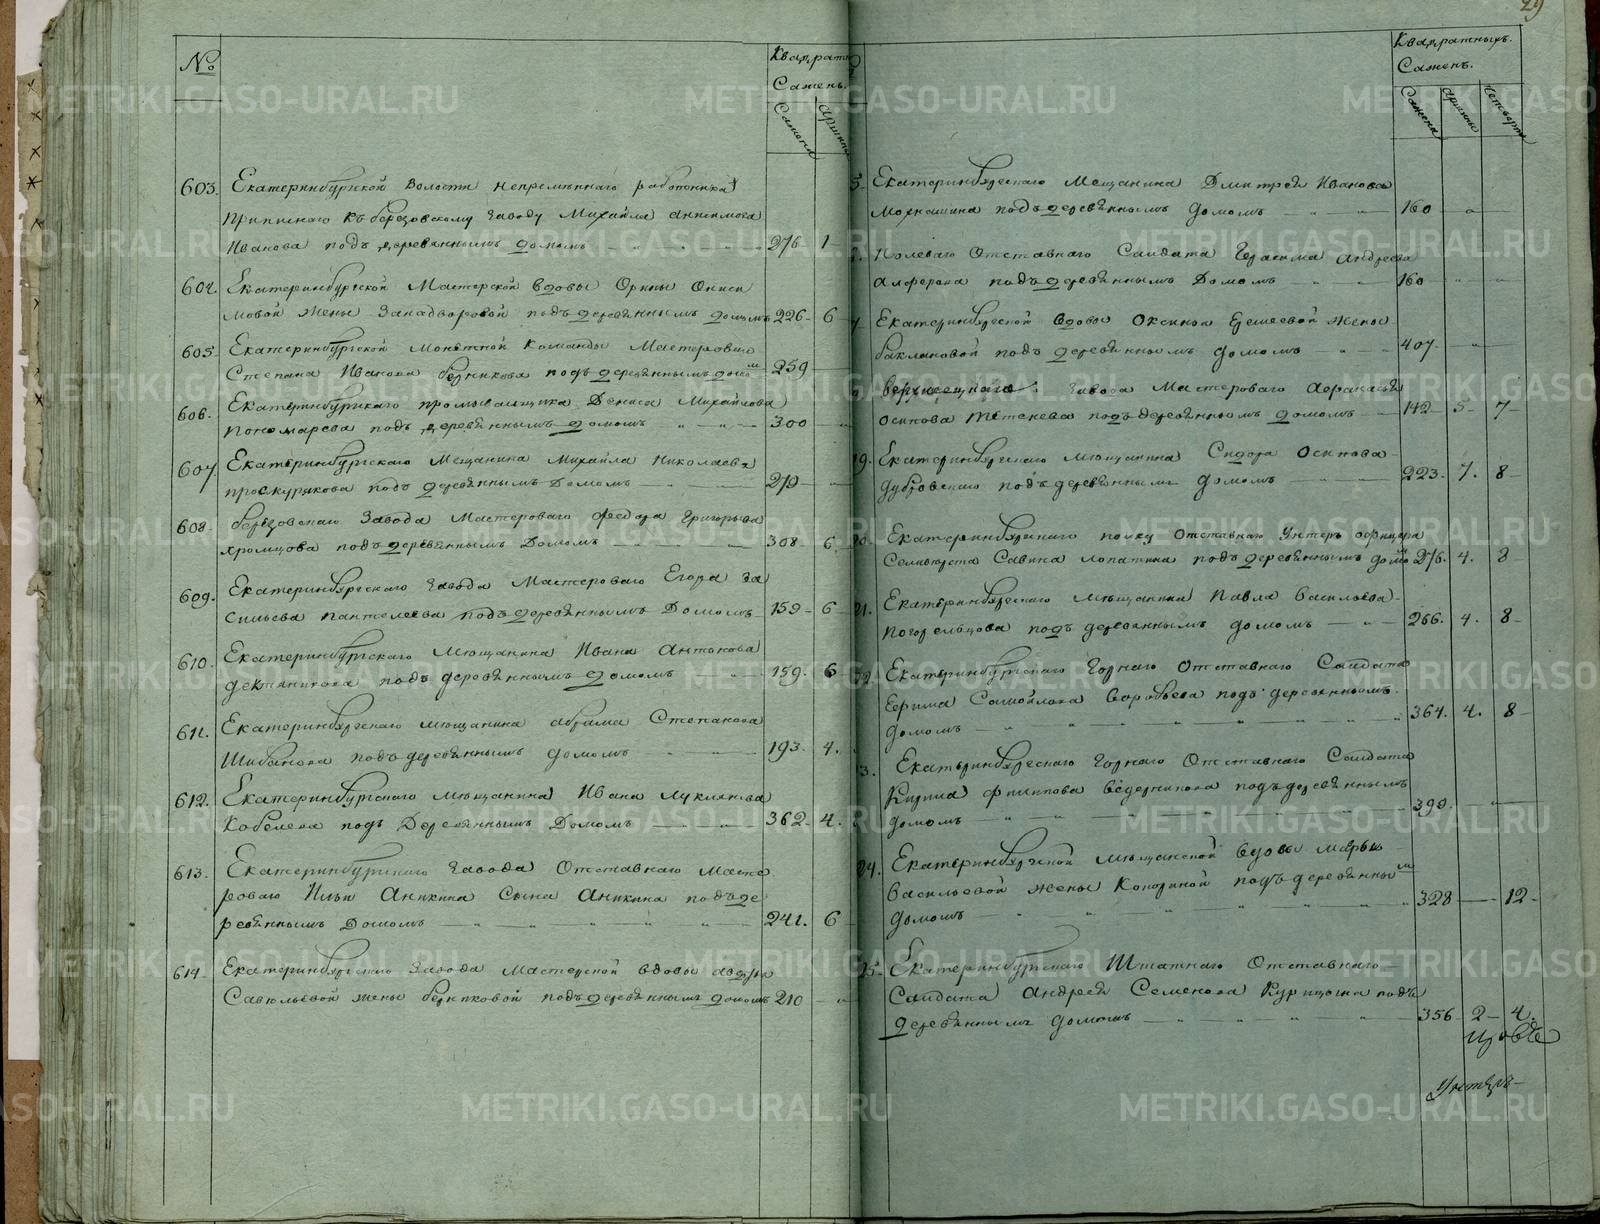 №
Квадратн
Сажен.
Сажени
Аршины
603. Екатеринбургской волости непременнаго работника
приписнаго къ березовскому заводу Михайла Анисимова
Иванова подъ деревяннымъ домомъ 276 1
604. Екатеринбургской Мастерской вдовы Орины Ониси
мовой жены Западворовой подъ деревяннымъ домомъ 226 6
605. Екатеринбургской Монетной команды Мастероваго
Степана Иванова подъ деревяннымъ домомъ 259
606. Екатеринбургскаго промывальщика Дениса Михайлова
Пономарева подъ деревяннымъ домомъ 300
607. Екатеринбургскаго Мещанина Михайла Николаева
проскурякова подъ деревяннымъ Домомъ 270
608. березовскаго Завода Мастероваго Федора Григорьева
хромцова подъ деревяннымъ Домомъ 308 6
609. Екатеринбургскаго завода Мастероваго Егора Ва
сильева пантелеева подъ деревяннымъ Домомъ 159 6
610. Екатеринбургскаго Мещанина Ивана Антонова
подъ деревяннымъ домомъ 159. 6
611. Екатеринбургскаго мещанина абрама Степанова
Шибанова подъ деревяннымъ домомъ 193. 4.
612. Екатеринбургскаго мещанина Ивана Лукиянова
Кобелева подъ Деревяннымъ Домомъ 362. 4.
613. Екатеринбургскаго завода Отставнаго Масте
роваго Ильи Аникина Сына Аникина подъ де
ревяннымъ Домомъ 241. 6
614. Екатеринбургскаго Завода Мастерской вдовы
Савельевой жены подъ деревяннымъ домомъ 210
29
Квадратныхъ.
Саженъ.
Сажени
Аршины
Четверти
5. Екатеринбургскаго Мещанина Дмитрея Иванова
подъ деревяннымъ домомъ 160
Полеваго Отставнаго Салдата Герасима Андреева
Алферова подъ деревяннымъ Домомъ 160
7. Екатеринбургской вдовы Оксиньи жены
баклановой подъ деревяннымъ домомъ 407
завода Мастероваго Афанасья
Осипова подъ деревяннымъ домомъ 142 5 7
19. Екатеринбургскаго мещанина Сидора Осипова
дубровскаго подъ деревяннымъ домомъ 223. 7. 8
20. Екатеринбургскаго полку отставнаго Унтеръ офицера
Селиверста Савина лопатина подъ деревяннымъ домомъ 276. 4. 8
21. Екатеринбургскаго мещанина Павла Васильева
погорельцова подъ деревяннымъ домомъ 266. 4. 8
22. Екатеринбургскаго Горнаго Отставнаго Салдата
Ефима Самойлова Воробьева подъ деревяннымъ
домомъ 364. 4. 8
3. Екатеринбургскаго Горнаго Отставнаго Салдата
Кирила Филипова ведерникова подъ деревяннымъ
домомъ 399.
24. Екатеринбургской мещанской вдовы Марьи
Васильевой жены Кониной подъ деревяннымъ
домомъ 328 12
25. Екатеринбургскаго Штатнаго Отставнаго
Салдата Андрея Семенова Курицына подъ
деревяннымъ домомъ 356 2 4.
METRIKI.GASO-URAL.RU